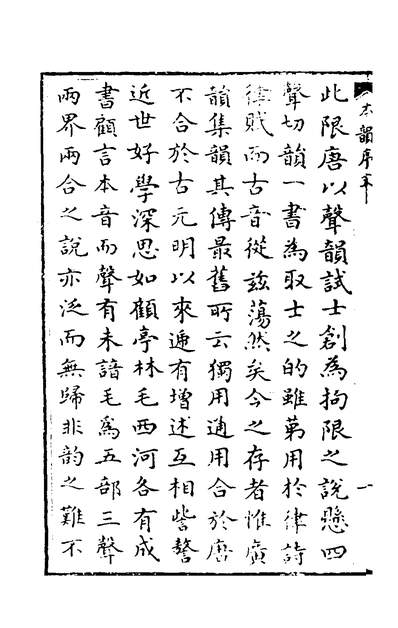 本韻序
一
此限唐以聲韻試士創為拘限之說懸四
聲切韻一書為取士之的雖第用於律詩
律賦而古音從兹蕩然矣今之存者惟廣
韻集韻其傳最舊所云獨用通用合於唐
不合於古元明以來遞有增述互相訾謷
近世好學深思如顧亭林毛西河各有成
書顧言本音而聲有未諳毛爲五部三聲
兩界兩合之說亦泛而無歸非韵之難不